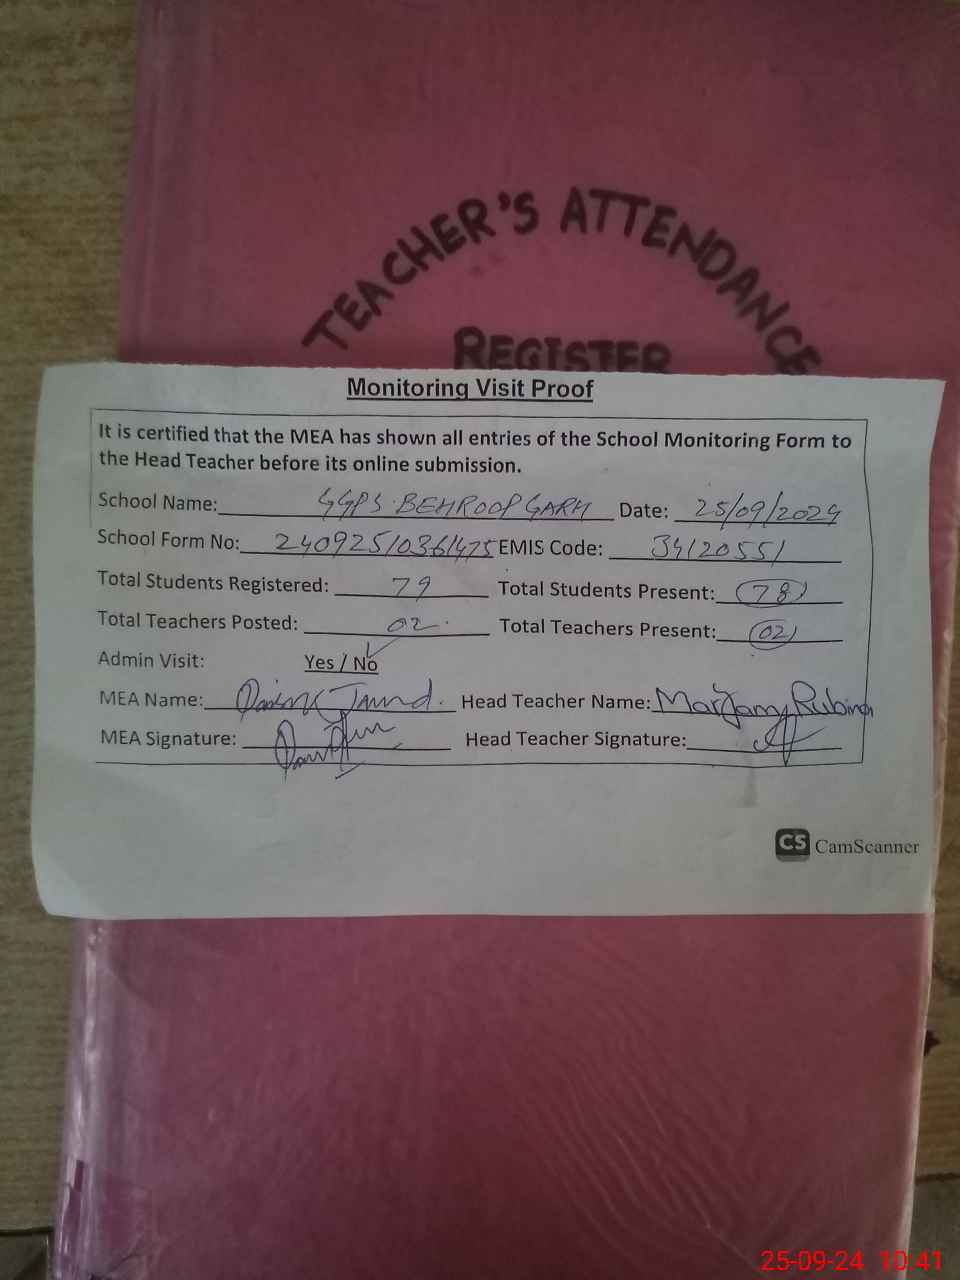 TEACHER'S ATTENDANCE
REGISTER
Monitoring Visit Proof
It is certified that the MEA has shown all entries of the School Monitoring Form to
the Head Teacher before its online submission.
School Name: GGPS BEHROOP GARH Date: 25/09/2024
School Form No: 24092510361475 EMIS Code: 34120551
Total Students Registered: 79 Total Students Present: 78
Total Teachers Posted: 02 Total Teachers Present: 02
Admin Visit: Yes / No
MEA Name: Head Teacher Name: Maryam Rubina
MEA Signature: Head Teacher Signature:
CS CamScanner
25-09-24 10:41